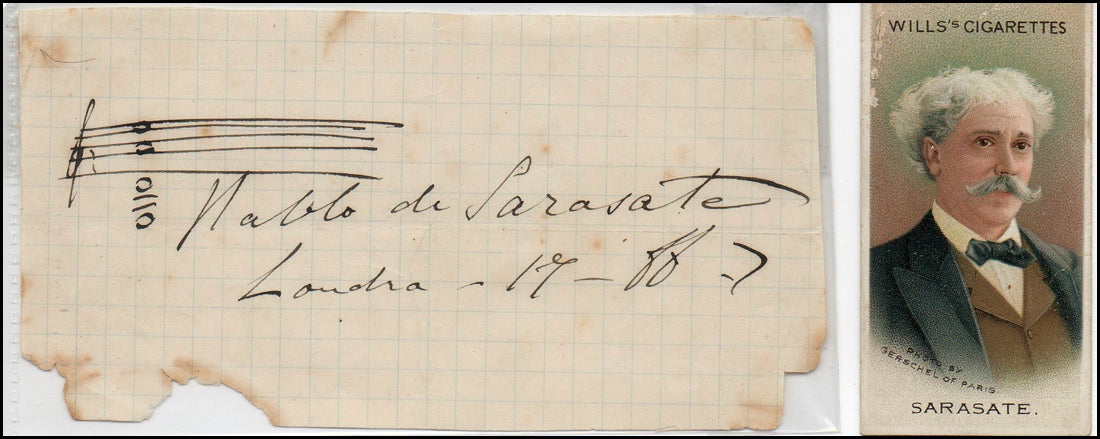 Pablo de Sarasate
Londra - 17 -
WILLS'S CIGARETTES
PHOTO BY
GERSCHEL OF PARIS.
SARASATE.